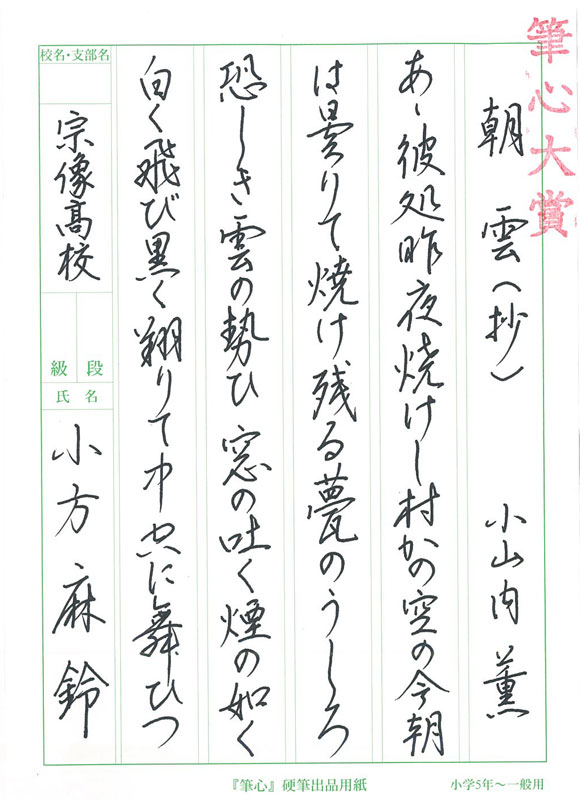 筆心大賞
朝雲（抄） 小山内薫
あゝ彼処昨夜焼けし村かの空の今朝
は曇りて焼け残る甍のうしろ
恐しき雲の勢ひ窓の吐く煙の如く
白く飛び黒く翔りて中空に舞ひつ
校名・支部名
宗像高校
段級
氏名
小方麻鈴
『筆心』硬筆出品用紙
小学5年〜一般用